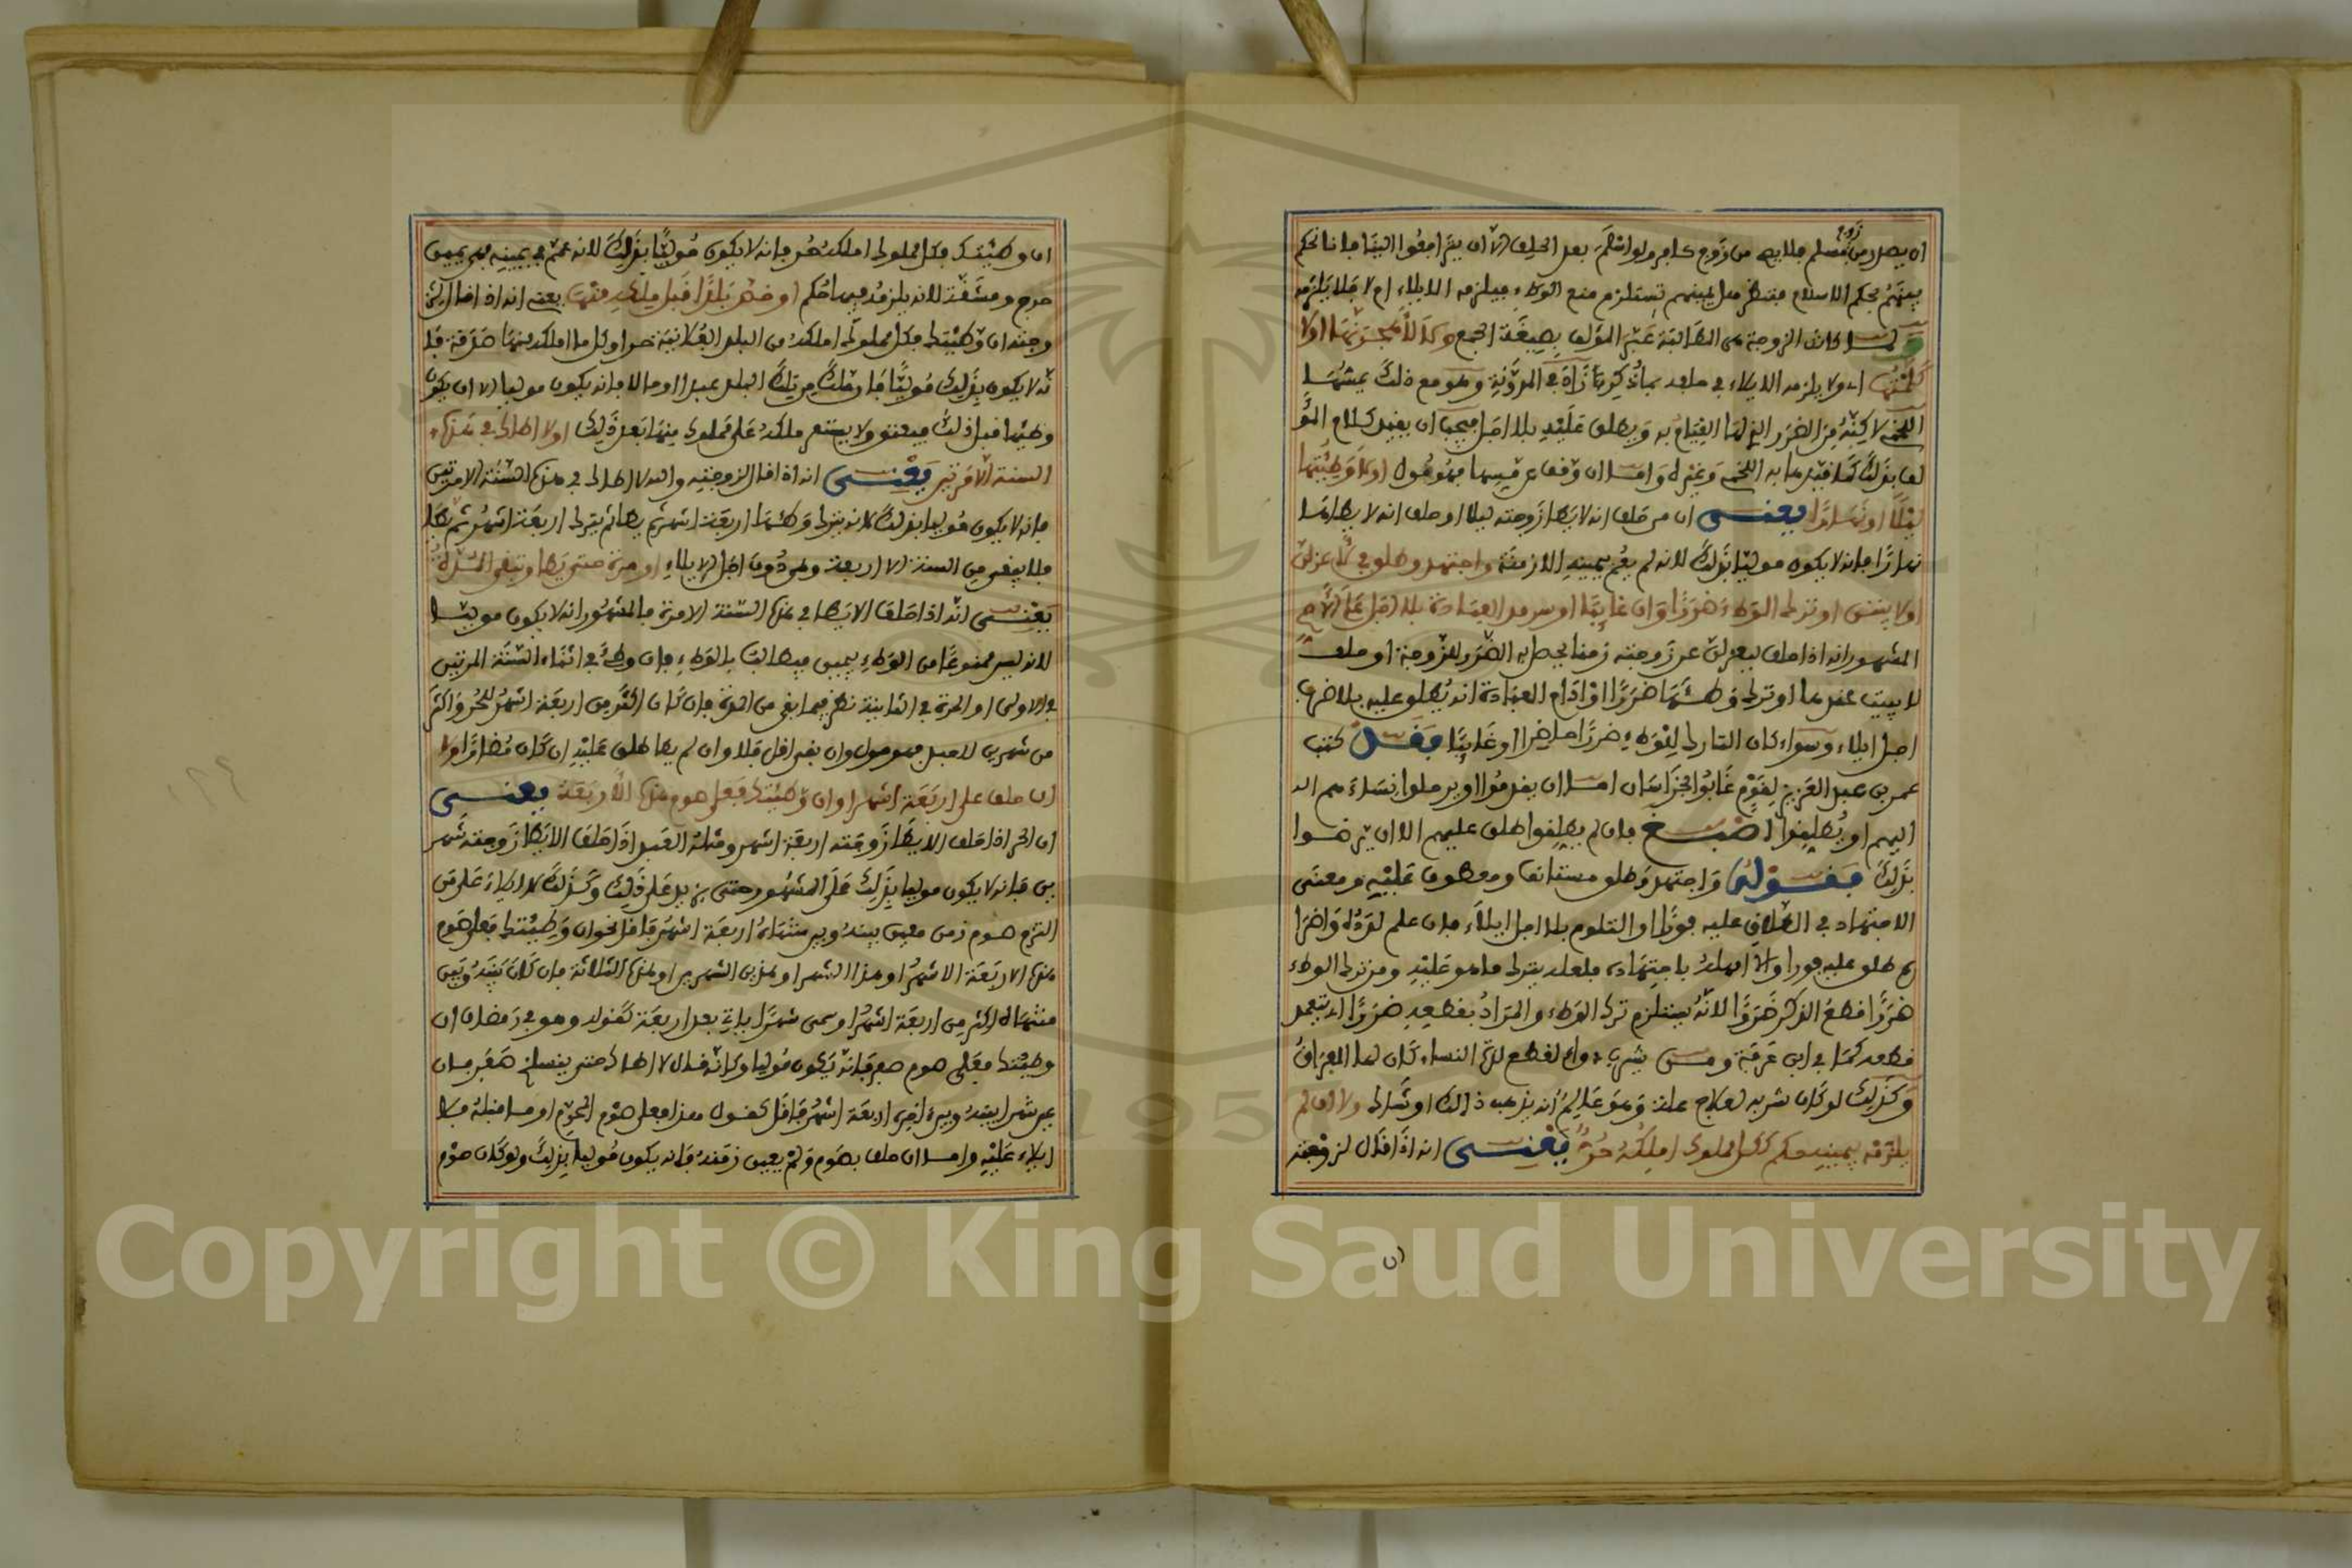 ان يصدر من زوج مسلم فلا يصح من زوج كافر ولو اسلم بعد الحلف الا ان يترافعوا الينا فاننا نحكم
بينهم بحكم الاسلام فتنظر هل يمينهم تستلزم منع الوطء فيلزمه الايلاء ام لا فلا يلزمه
ولما كانت الزوجة هي المطالبة عبر المؤلف بصيغة الجمع وكذا لأهجرنها او لا
كلمتها اي ولا يلزمه الايلاء في حلفه بما ذكر كما رآه في المدونة وهو مع ذلك يمسها
اللخمي لاكنه من الضرر التي لها القيام به ويطلق عليه بلا اجل فيجب ان يقيد كلام المؤ
لف بذلك كما قيد به اللخمي وغيره واما ان وقف عن مسيسها فهو مول او لا وطئتها
ليلا او نهارا يعني ان من حلف انه لا يطا زوجته ليلا او حلف انه لا يطاها
نهارا فانه لا يكون موليا بذلك لانه لم يعم بيمينه الازمنة واجتهد وطلق في لأعزلن
او لا يبيتن او ترك الوطء ضررا وان غائبا او سرمد العبادة بلا اجل على الاصح
المشهور انه اذا حلف ليعزلن عن زوجته زمنا يحصل به الضرر للزوجة او حلف
لا يبيت عندها او ترك وطئها ضررا او ادام العبادة انه يطلق عليه بلا ضرب
اجل ايلاء وسواء كان التارك للوطء ضررا حاضرا او غائبا فقد كتب
عمر بن عبد العزيز لقوم غابوا بخراسان اما ان يقدموا او يرحلوا نساءهم الـ
اليهم او يطلقوا اصبغ فان لم يطلقوا طلق عليهم الا ان يرضوا
بذلك فقوله واجتهد وطلق مستانف ومعطوف عليه ومعنى
الاجتهاد في الطلاق عليه فورا او التلوم بلا اجل ايلاء فان علم لدده واضرا
ره طلق عليه فورا والا امهله باجتهاده فلعله يترك ما هو عليه ومن ترك الوطء
ضررا قطع الذكر ضررا لانه يستلزم ترك الوطء والمراد بقطعه ضررا ان يتعمد
قطعه كما في ابن عرفة ومن يشرب دواء لقطع لذة النساء كان لها الفراق
وكذلك لو كان شربه لعلاج علة وهو عالم انه يذهب ذالك او شاك ولا ان لم
يلزمه بيمينه حكم ككل مملوك املكه حر يعني انه اذا قال لزوجته
ان وطئتك فكل مملوك املكه حر فانه لا يكون موليا بذلك لانه عم في يمينه فهي يمين
حرج ومشقة لانه يلزمه فيها حكم او خص بلدا قبل ملكه منها يعني انه اذا قال لز
وجته ان وطئتك فكل مملوك املكه من البلد الفلانية حر او كل مال املكه منها صدقة فا
نه لا يكون بذلك موليا فان ملك من تلك البلد عبدا او مالا فانه يكون موليا الا ان يكون
وطئها قبل ذلك فيعتق ولا يستقر ملكه على مملوك منها بعد ذلك او لا اطاك في هذه
السنة الا مرتين يعني انه اذا قال لزوجته والله لا اطاك في هذه السنة الا مرتين
فانه لا يكون موليا بذلك لانه يترك وطئها اربعة اشهر ثم يطا ثم يترك اربعة اشهر ثم يطا
فلا يبقى من السنة الا اربعة وهي دون اجل الايلاء او مرة حتى يطا وتبقى المدة
يعني انه اذا حلف الا يطا في هذه السنة الا مرة فالمشهور انه لا يكون موليا
لانه ليس ممنوعا من الوطء بيمين فيطالب بالوطء فان وطئ في اثناء السنة المرتين
في الاولى او المرة في الثانية نظر فيما بقي من المدة فان كان اكثر من اربعة اشهر للحر واكثر
من شهرين للعبد فهو مول وان بقي اقل فلا وان لم يطا طلق عليه ان كان مضارا او لا
ان حلف على اربعة اشهر او ان وطئتك فعلي صوم هذه الأربعة يعني
ان الحر اذا حلف الا يطا زوجته اربعة اشهر ومثله العبد اذا حلف الا يطا زوجته شهر
ين فانه لا يكون موليا بذلك على المشهور حتى يزيد على ذلك وكذلك لا ايلاء على من
التزم صوم زمن معين بينه وبين منتهاه اربعة اشهر فاقل نحو ان وطئتك فعلي صوم
هذه الاربعة الاشهر او هذا الشهر او هذين الشهرين او هذه الثلاثة فان كان بينه وبين
منتهاه اكثر من اربعة اشهر او سمى شهرا ياتي بعد اربعة كقوله وهو في رمضان ان
وطئتك فعلي صوم صفر فانه يكون موليا وكانه قال لا اطاك حتى ينسلخ صفر فان
عين شهرا بينه وبين اخره اربعة اشهر فاقل كقوله هذا فعلي صوم المحرم او ما قبله فلا
ايلاء عليه واما ان حلف بصوم ولم يعين زمنه فانه يكون موليا بذلك ولو كان صوم